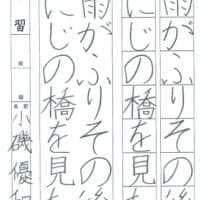 雨がふりその後
にじの橋を見
雨がふりその後
にじの橋を見
習
小磯優